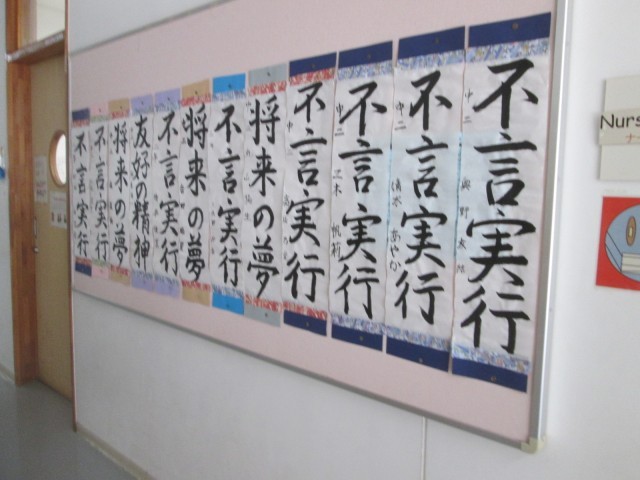 不言実行
中二 奥野
不言実行
中二 あやか
不言実行
中二 三木
不言実行
将来の夢
不言実行
将来の夢
不言実行
友好の精神
将来の夢
不言実行
不言実行
Nurs